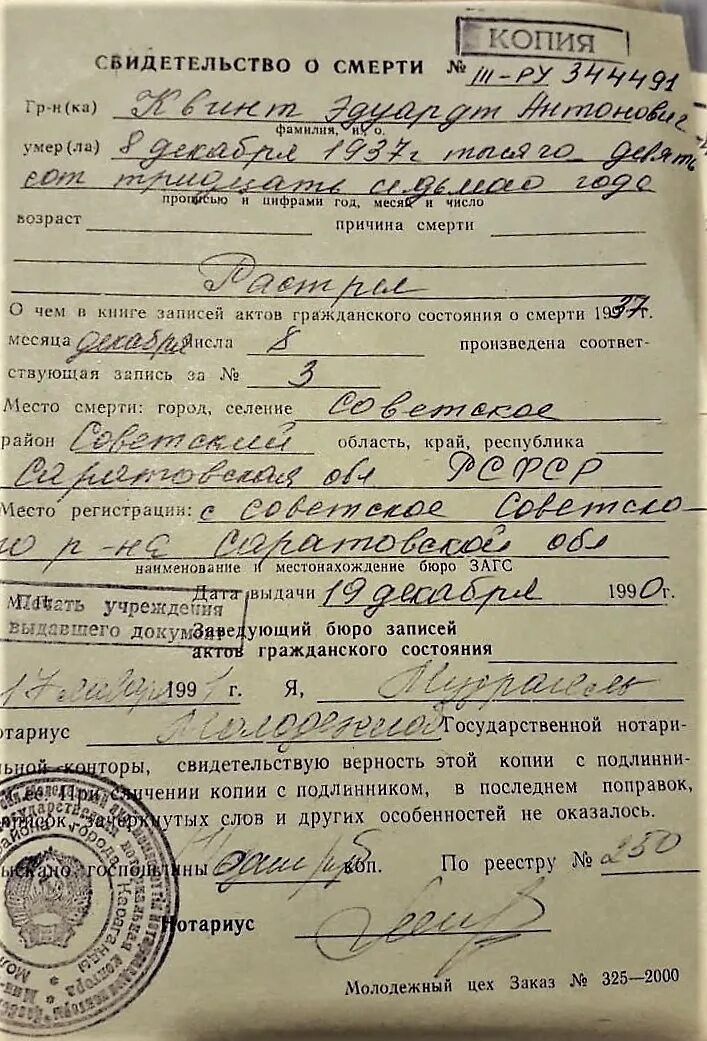 КОПИЯ
СВИДЕТЕЛЬСТВО О СМЕРТИ № III-РУ 344491
Гр-н(ка) Квинт Эдуардт Антонович
фамилия, и., о.
умер(ла) 8 декабря 1937г тысяго девять
сот тридцать седьмого года
прописью и цифрами год, месяц и число
возраст причина смерти
Растрел
О чем в книге записей актов гражданского состояния о смерти 1937г.
месяца декабря числа 8 произведена соответ-
ствующая запись за № 3
Место смерти: город, селение Советское
район Советский область, край, республика
Саратовская обл РСФСР
Место регистрации: с Советское Советско-
го р-на Саратовской обл
наименование и местонахождение бюро ЗАГС
Дата выдачи 19 декабря 1990г.
М.П.
Печать учреждения
выдавшего документ
Заведующий бюро записей
актов гражданского состояния
17 января 1991 г. Я,
отариус Молодежной Государственной нотари-
льной конторы, свидетельствую верность этой копии с подлинни-
ком. При сличении копии с подлинником, в последнем поправок,
приписок, зачеркнутых слов и других особенностей не оказалось.
зыскано госпошлины коп. По реестру № 250
Нотариус
района города Караганды
Молодежный цех Заказ № 325—2000